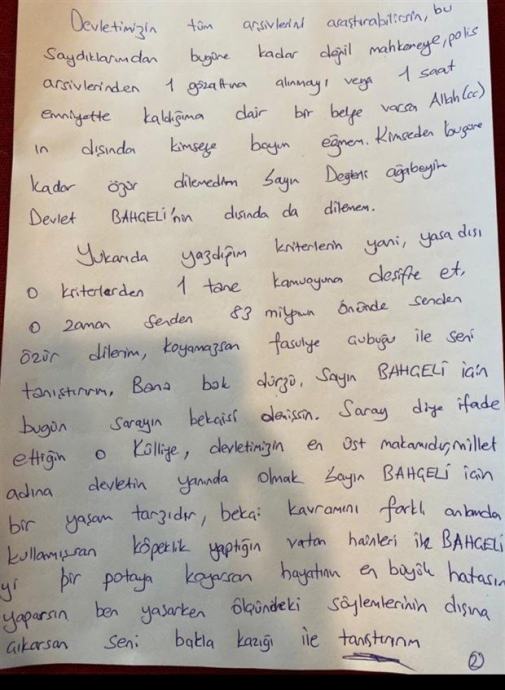 Devletimizin tüm arşivlerini araştırabilirsin, bu
saydıklarımdan bugüne kadar değil mahkemeye, polis
arşivlerinden 1 gözaltına alınmayı veya 1 saat
emniyette kaldığıma dair bir belge varsa Allah (cc)
ın dışında kimseye boyun eğmem. Kimseden bugüne
kadar özür dilemedim Sayın Değerli ağabeyim
Devlet BAHÇELİ'nin dışında da dilemem.
Yukarıda yazdığım kriterlerin yani, yasa dışı
o kriterlerden 1 tane kamuoyuna deşifre et,
o zaman senden 83 milyonun önünde senden
özür dilerim, koyamazsan fasulye çubuğu ile seni
tanıştırırım, Bana bak dürzü, Sayın BAHÇELİ için
bugün sarayın bekçisi demişsin. Saray diye ifade
ettiğin o Külliye, devletimizin en üst makamıdır, millet
adına devletin yanında olmak Sayın BAHÇELİ için
bir yaşam tarzıdır, bekçi kavramını farklı anlamda
kullanmışsan köpeklik yaptığın vatan hainleri ile BAHÇELİ
yi bir potaya koyarsan hayatının en büyük hatasın
yaparsın ben yaşarken ölçündeki söylemlerinin dışına
çıkarsan seni bakla kazığı ile tanıştırırım
2